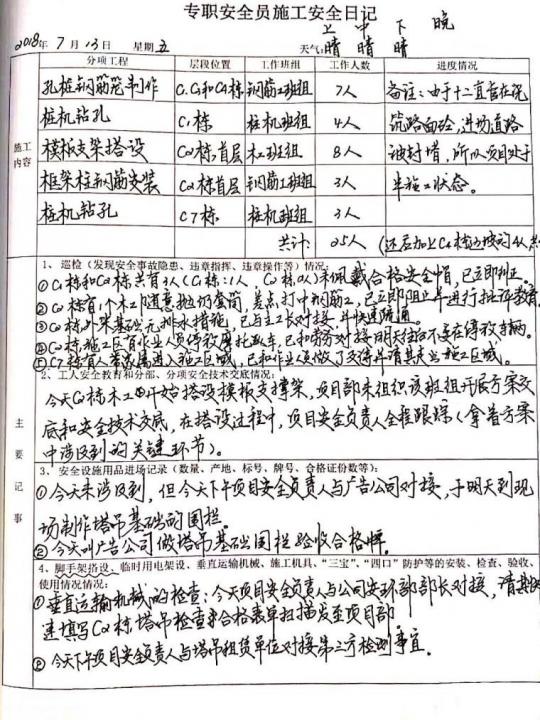 专职安全员施工安全日记
上 中 下 晚
2018年7月13日 星期五 天气:晴 晴 晴
分项工程 层段位置 工作班组 工作人数 进度情况
孔桩钢筋笼制作 C1、C3和C4栋 钢筋工班组 7人 备注:由于十二直管在浇
桩机钻孔 C1栋 桩机班组 4人 筑路面砼,进场道路
施工内容
模板支架搭设 C2栋首层 木工班组 8人 被封堵,所以项目处于
框架柱钢筋安装 C2栋首层 钢筋工班组 3人 半施工状态。
桩机钻孔 C7栋 桩机班组 3人
共计: 25人 (还后加上C4栋边坡的4人
1、巡检(发现安全事故隐患、违章指挥、违章操作等)情况:
①C1栋和C2栋共有3人(C1栋:1人,C2栋2人)未佩戴合格安全帽,已立即纠正。
②C2栋有1个木工随意抛扔套筒,差点打中钢筋工,已立即阻止并进行批评教育。
③C2栋外架基础无排水措施,已与主工长对接,并快速疏通
④C2栋施工区有作业人员停放摩托车,已和劳务对接明天往后不要在停放车辆。
⑤C7栋有人带家属进入施工区域,已和作业人员做了交待并请其出施工区域。
2、工人安全教育和分部、分项安全技术交底情况:
今天C2栋木工开始搭设模板支撑架,项目部未组织该班组开展方案交
底和安全技术交底,在搭设过程中,项目安全负责人全程跟踪(拿着方案
中涉及到的关键环节)。
主要记事
3、安全设施用品进场记录(数量、产地、标号、牌号、合格证份数等):
①今天未涉及到,但今天下午项目安全负责人与广告公司对接,于明天到现
场制作塔吊基础的围栏。
②今天叫广告公司做塔吊基础围栏验收合格牌。
4、脚手架搭设、临时用电架设、垂直运输机械、施工机具、“三宝”、“四口”防护等的安装、检查、验收、
使用情况情况:
①垂直运输机械的检查:今天项目安全负责人与公司安环部部长对接,请其快
速填写C2栋塔吊检查合格表单扫描发至项目部
②今天下午项目安全负责人与塔吊租赁单位对接第三方检测事宜。